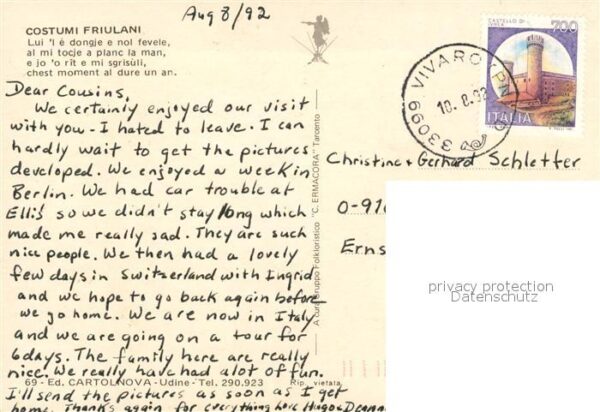 Aug 8/92
COSTUMI FRIULANI
Lui 'l è dongje e nol fevele,
al mi tocje a planc la man,
e jo 'o rît e mi sgrisuli,
chest moment al dure un an.
Dear Cousins,
We certainly enjoyed our visit
with you - I hated to leave. I can
hardly wait to get the pictures
developed. We enjoyed a week in
Berlin. We had car trouble at
Elli's so we didn't stay long which
made me really sad. They are such
nice people. We then had a lovely
few days in Switzerland with Ingrid
and we hope to go back again before
we go home. We are now in Italy
and we are going on a tour for
6 days. The family here are really
nice. We really have had alot of fun.
I'll send the pictures as soon as I get
home. Thanks again for everything love Hugo & Deanna
69 - Ed. CARTOLNOVA - Udine - Tel. 290.923
Rip. vietata
A cura Gruppo Folkloristico "C. ERMACORA" Tarcento
CASTELLO DI
IVREA
700
ITALIA
33099 VIVARO (PN)
10.8.92
Christine + Gerhard Schletter
O-910
Erns
privacy protection
Datenschutz